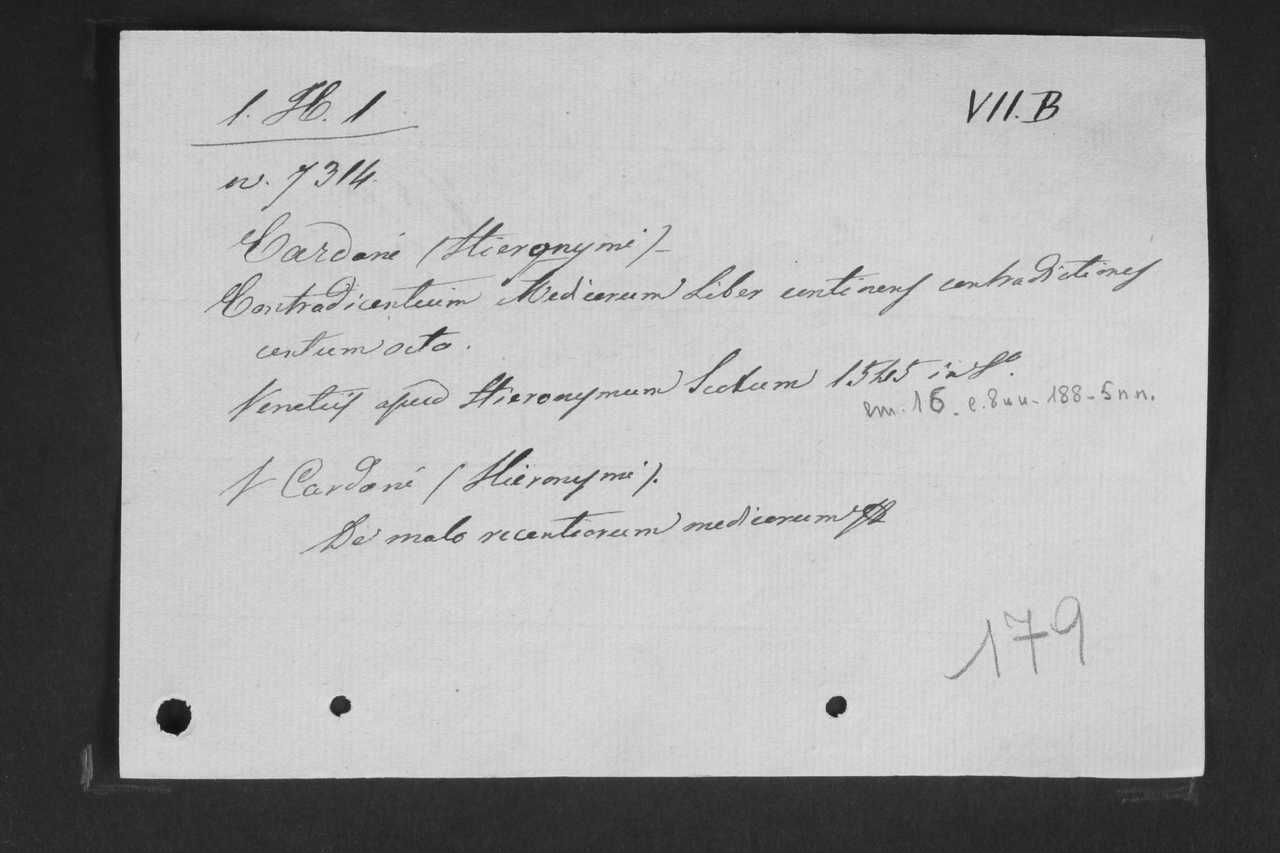 1. H. 1
VII. B
n. 7314
Cardani (Hieronymi)
Contradicentium Medicorum Liber continens contradictiones
centum octo.
Venetijs apud Hieronymum Scotum 1545 in 8°.
cm. 16 - c. 8 nn - 188 - 5 n n.
Cardani (Hieronymi).
De malo recentiorum medicorum
179